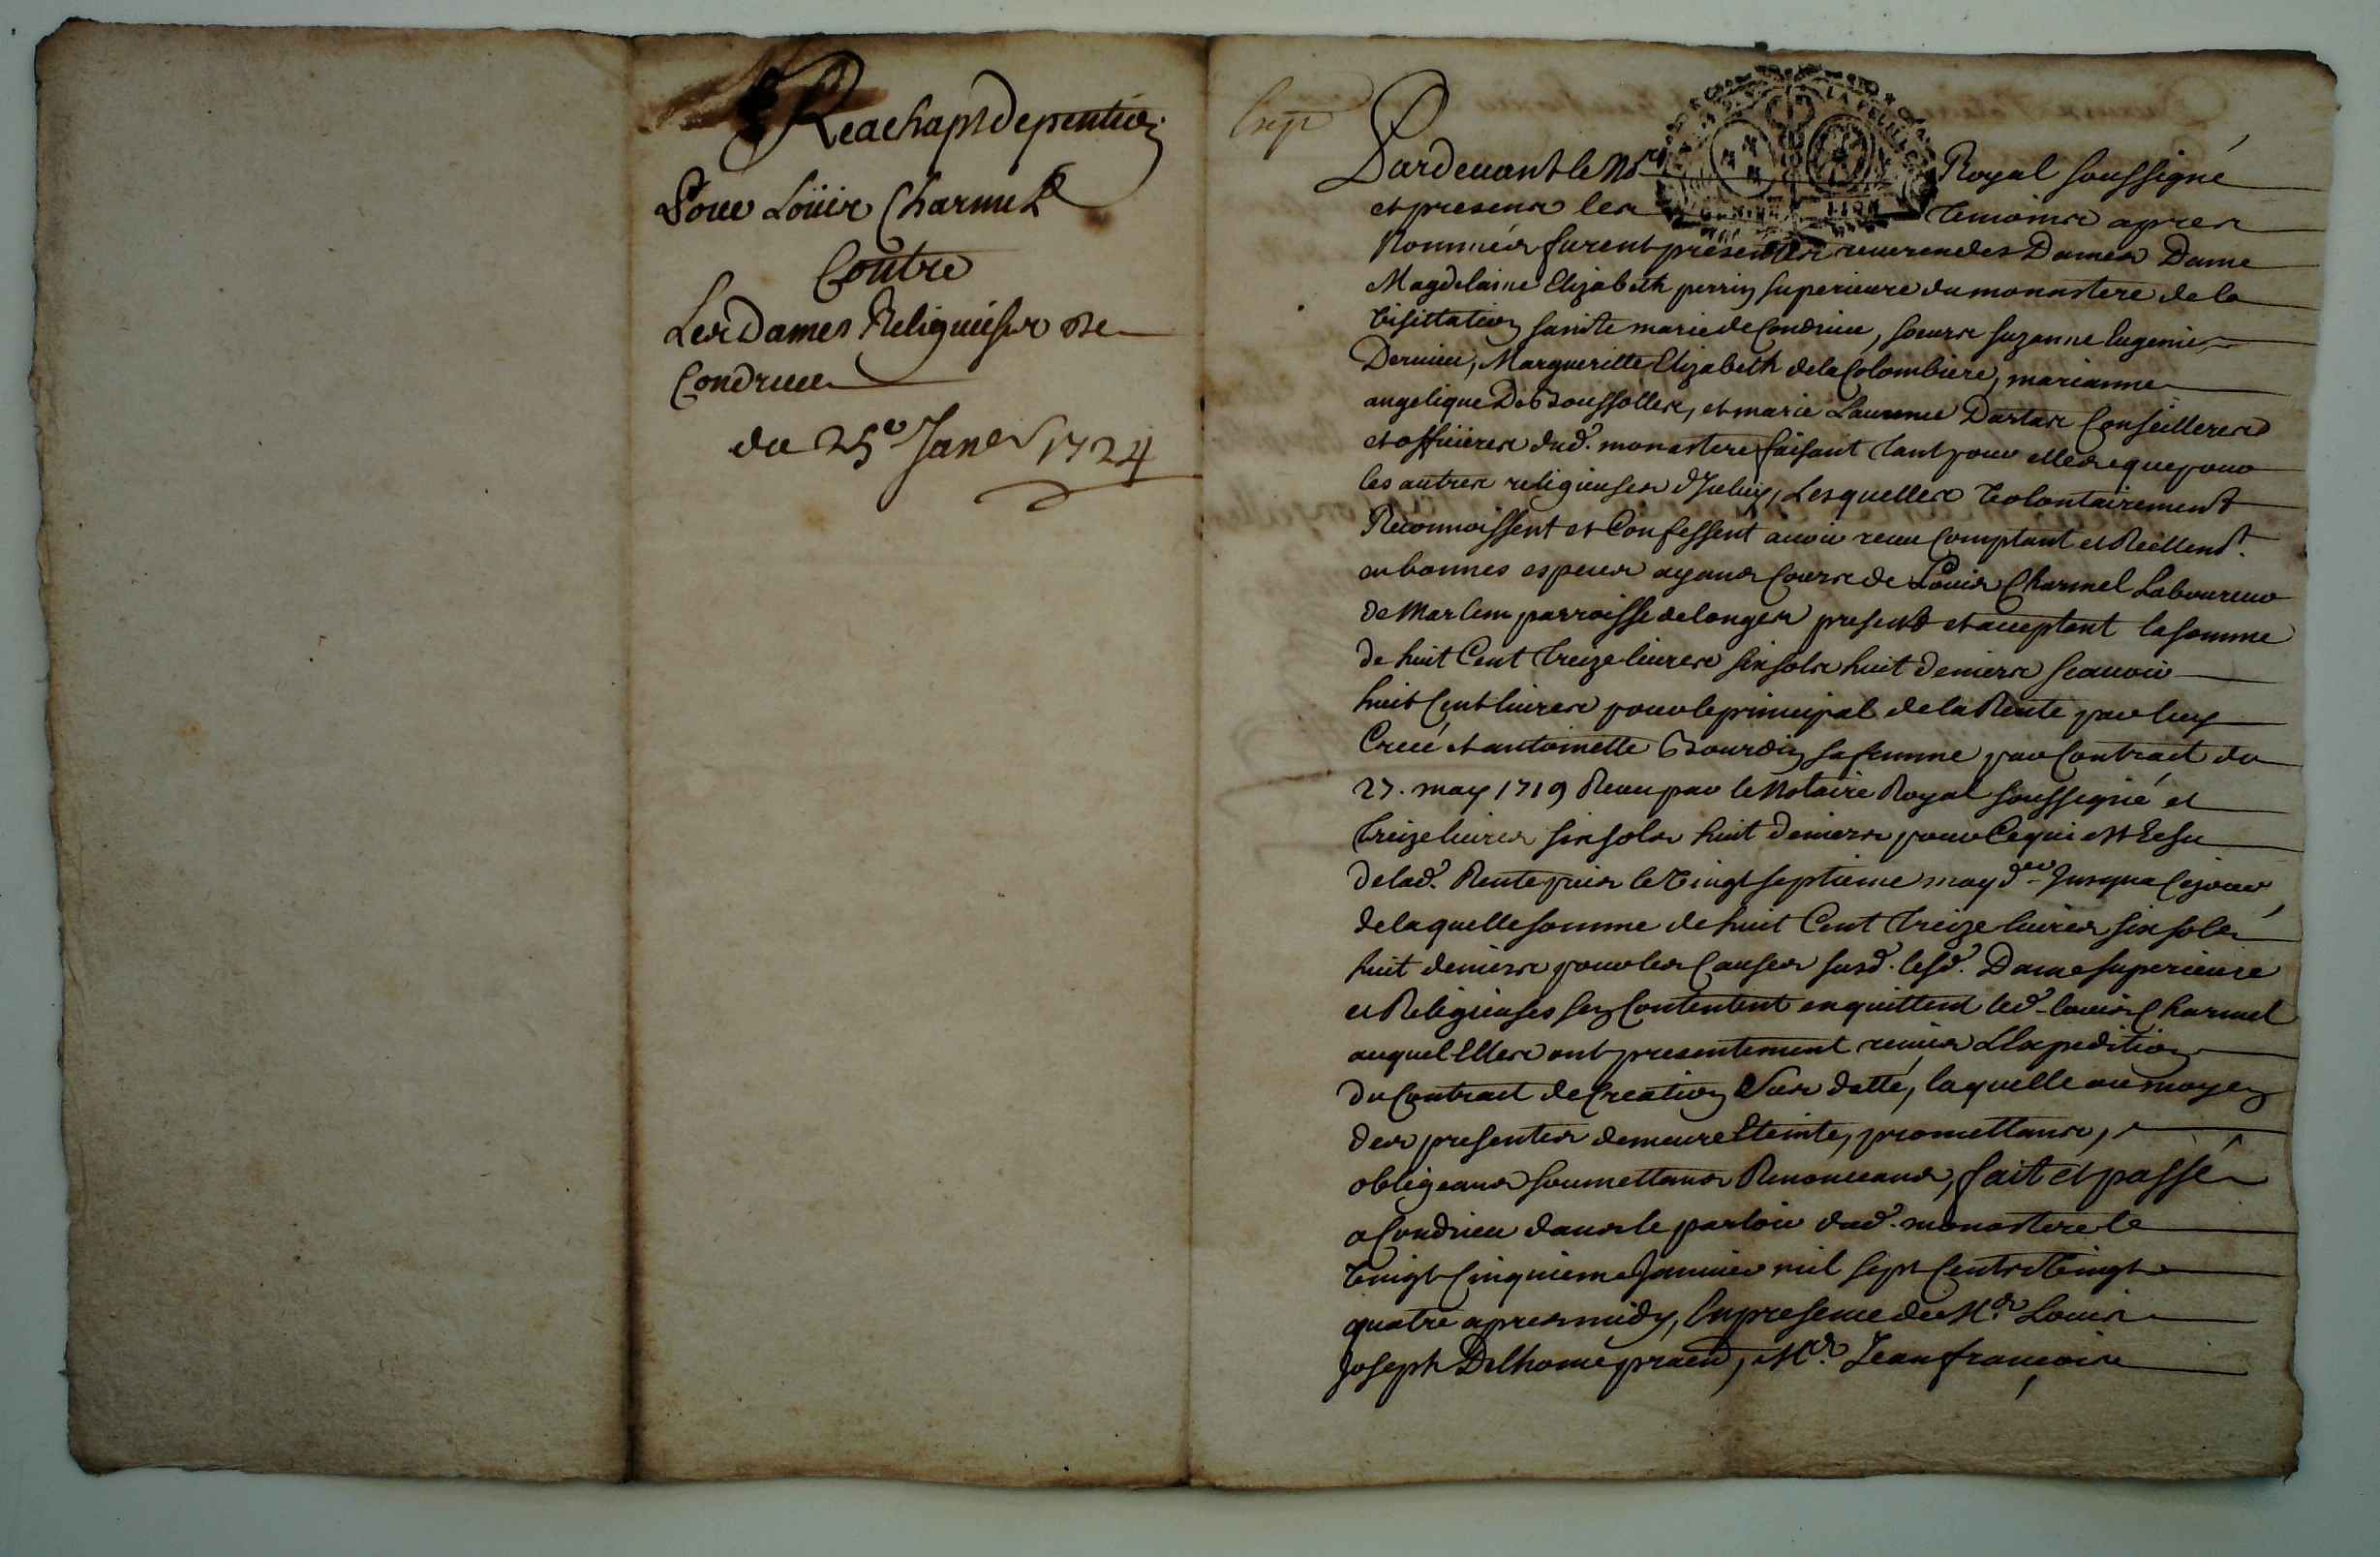 Reachapt de pention
Pour Loüis Charmel
Contre
Les Dames Religieuses de
Condrieu
du 25e Janer 1724
Exp
Pardevant le Nore Royal soussigné
et presens les temoins apres
Nommés furent presentes reverendes Dames Dame
Magdelaine Elizabeth perrin superieure du monastere de la
Visittation sainte marie de Condrieu, soeurs suzanne Eugenie
Dervieu, Margueritte Elizabeth de la Colombiere, marianne
angelique De Boussolles, et marie Laurence Dartas Conseilleres
et officieres dud. monastere faisant tant pour elles que pour
les autres religieuses d'Iceluy, Lesquelles volontairement
Reconnoissent et Confessent avoir receu Comptant et Reellemt.
en bonnes especes ayans Cours de Louis Charmel Laboureur
de Marlin parroisse de longes present et acceptant la somme
de huit Cent treize livres six sols huit deniers scavoir
huit Cent livres pour le principal de la Rente par luy
Creé et antoinette Bourdin sa femme par Contract du
27. may 1719 Receu par le Notaire Royal soussigné et
treize livres six sols huit deniers pour Ce qui est Echu
de lad. Rente puis le vingt septieme may der Jusqua Ce jour,
de laquelle somme de huit Cent treize livres six sols
huit deniers pour les Causes susd. lesd. Dame superieure
et Religieuses sen Contentent en quittent led. louis Charmel
auquel Elles ont presentement remis LExpedition
du Contract de Creation Sus datté, laquelle au moyen
des presentes demeure Eteinte, promettans,
obligeans soumettans Renonceans, fait et passé
a Condrieu dans le parloir dud. monastere le
vingt Cinquieme Janvier mil sept Cents vingt
quatre apres midy, En presence de Me. Louis
Joseph Delhome pratn, Me. Jean francois